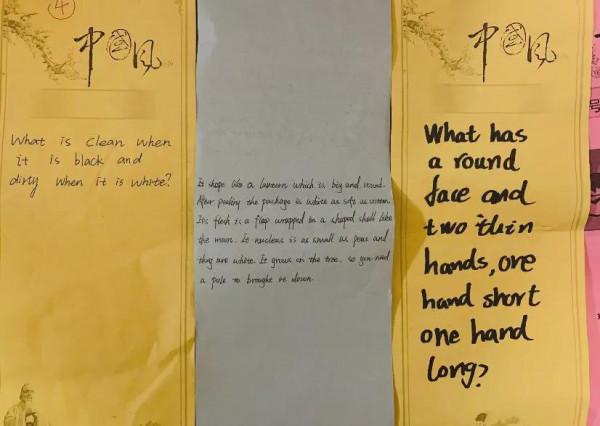 ④
中國风
What is clean when
it is black and
dirty when it is white?
It shape like a lantern which is big and round.
After peeling the package is white as soft as cotton.
Its flesh is a flap wrapped in a shaped shell like
the moon. It nucleus is as small as peas and
they are white. It grows on the tree, so you need
a pole to brought it down
中國风
What has
a round
face and
two thin
hands, one
hand short
one hand
long?
号